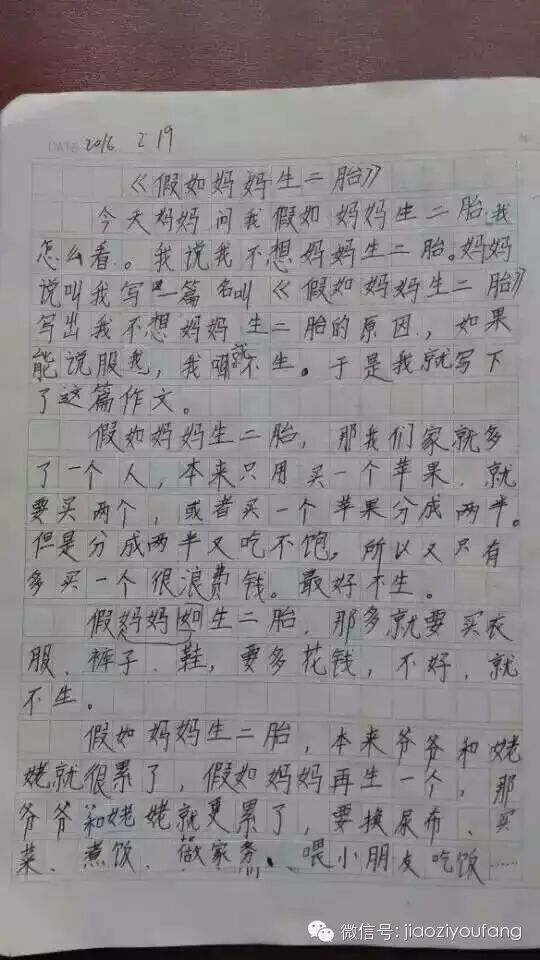 DATE 2016 2 19
《假如妈妈生二胎》
今天妈妈问我假如妈妈生二胎我
怎么看。我说我不想妈妈生二胎。妈妈
说叫我写一篇名叫《假如妈妈生二胎》
写出我不想妈妈生二胎的原因,如果
能说服我,我就不生。于是我就写下
了这篇作文。
假如妈妈生二胎,那我们家就多
了一个人,本来只用买一个苹果,就
要买两个,或者买一个苹果分成两半。
但是分成两半又吃不饱。所以又只有
多买一个很浪费钱。最好不生。
假妈妈如生二胎,那多就要买衣
服、裤子、鞋,要多花钱,不好,就
不生。
假如妈妈生二胎,本来爷爷和姥
姥就很累了,假如妈妈再生一个,那
爷爷和姥姥就更累了,要换尿布、买
菜、煮饭、做家务、喂小朋友吃饭……
微信号: jiaoziyoufang